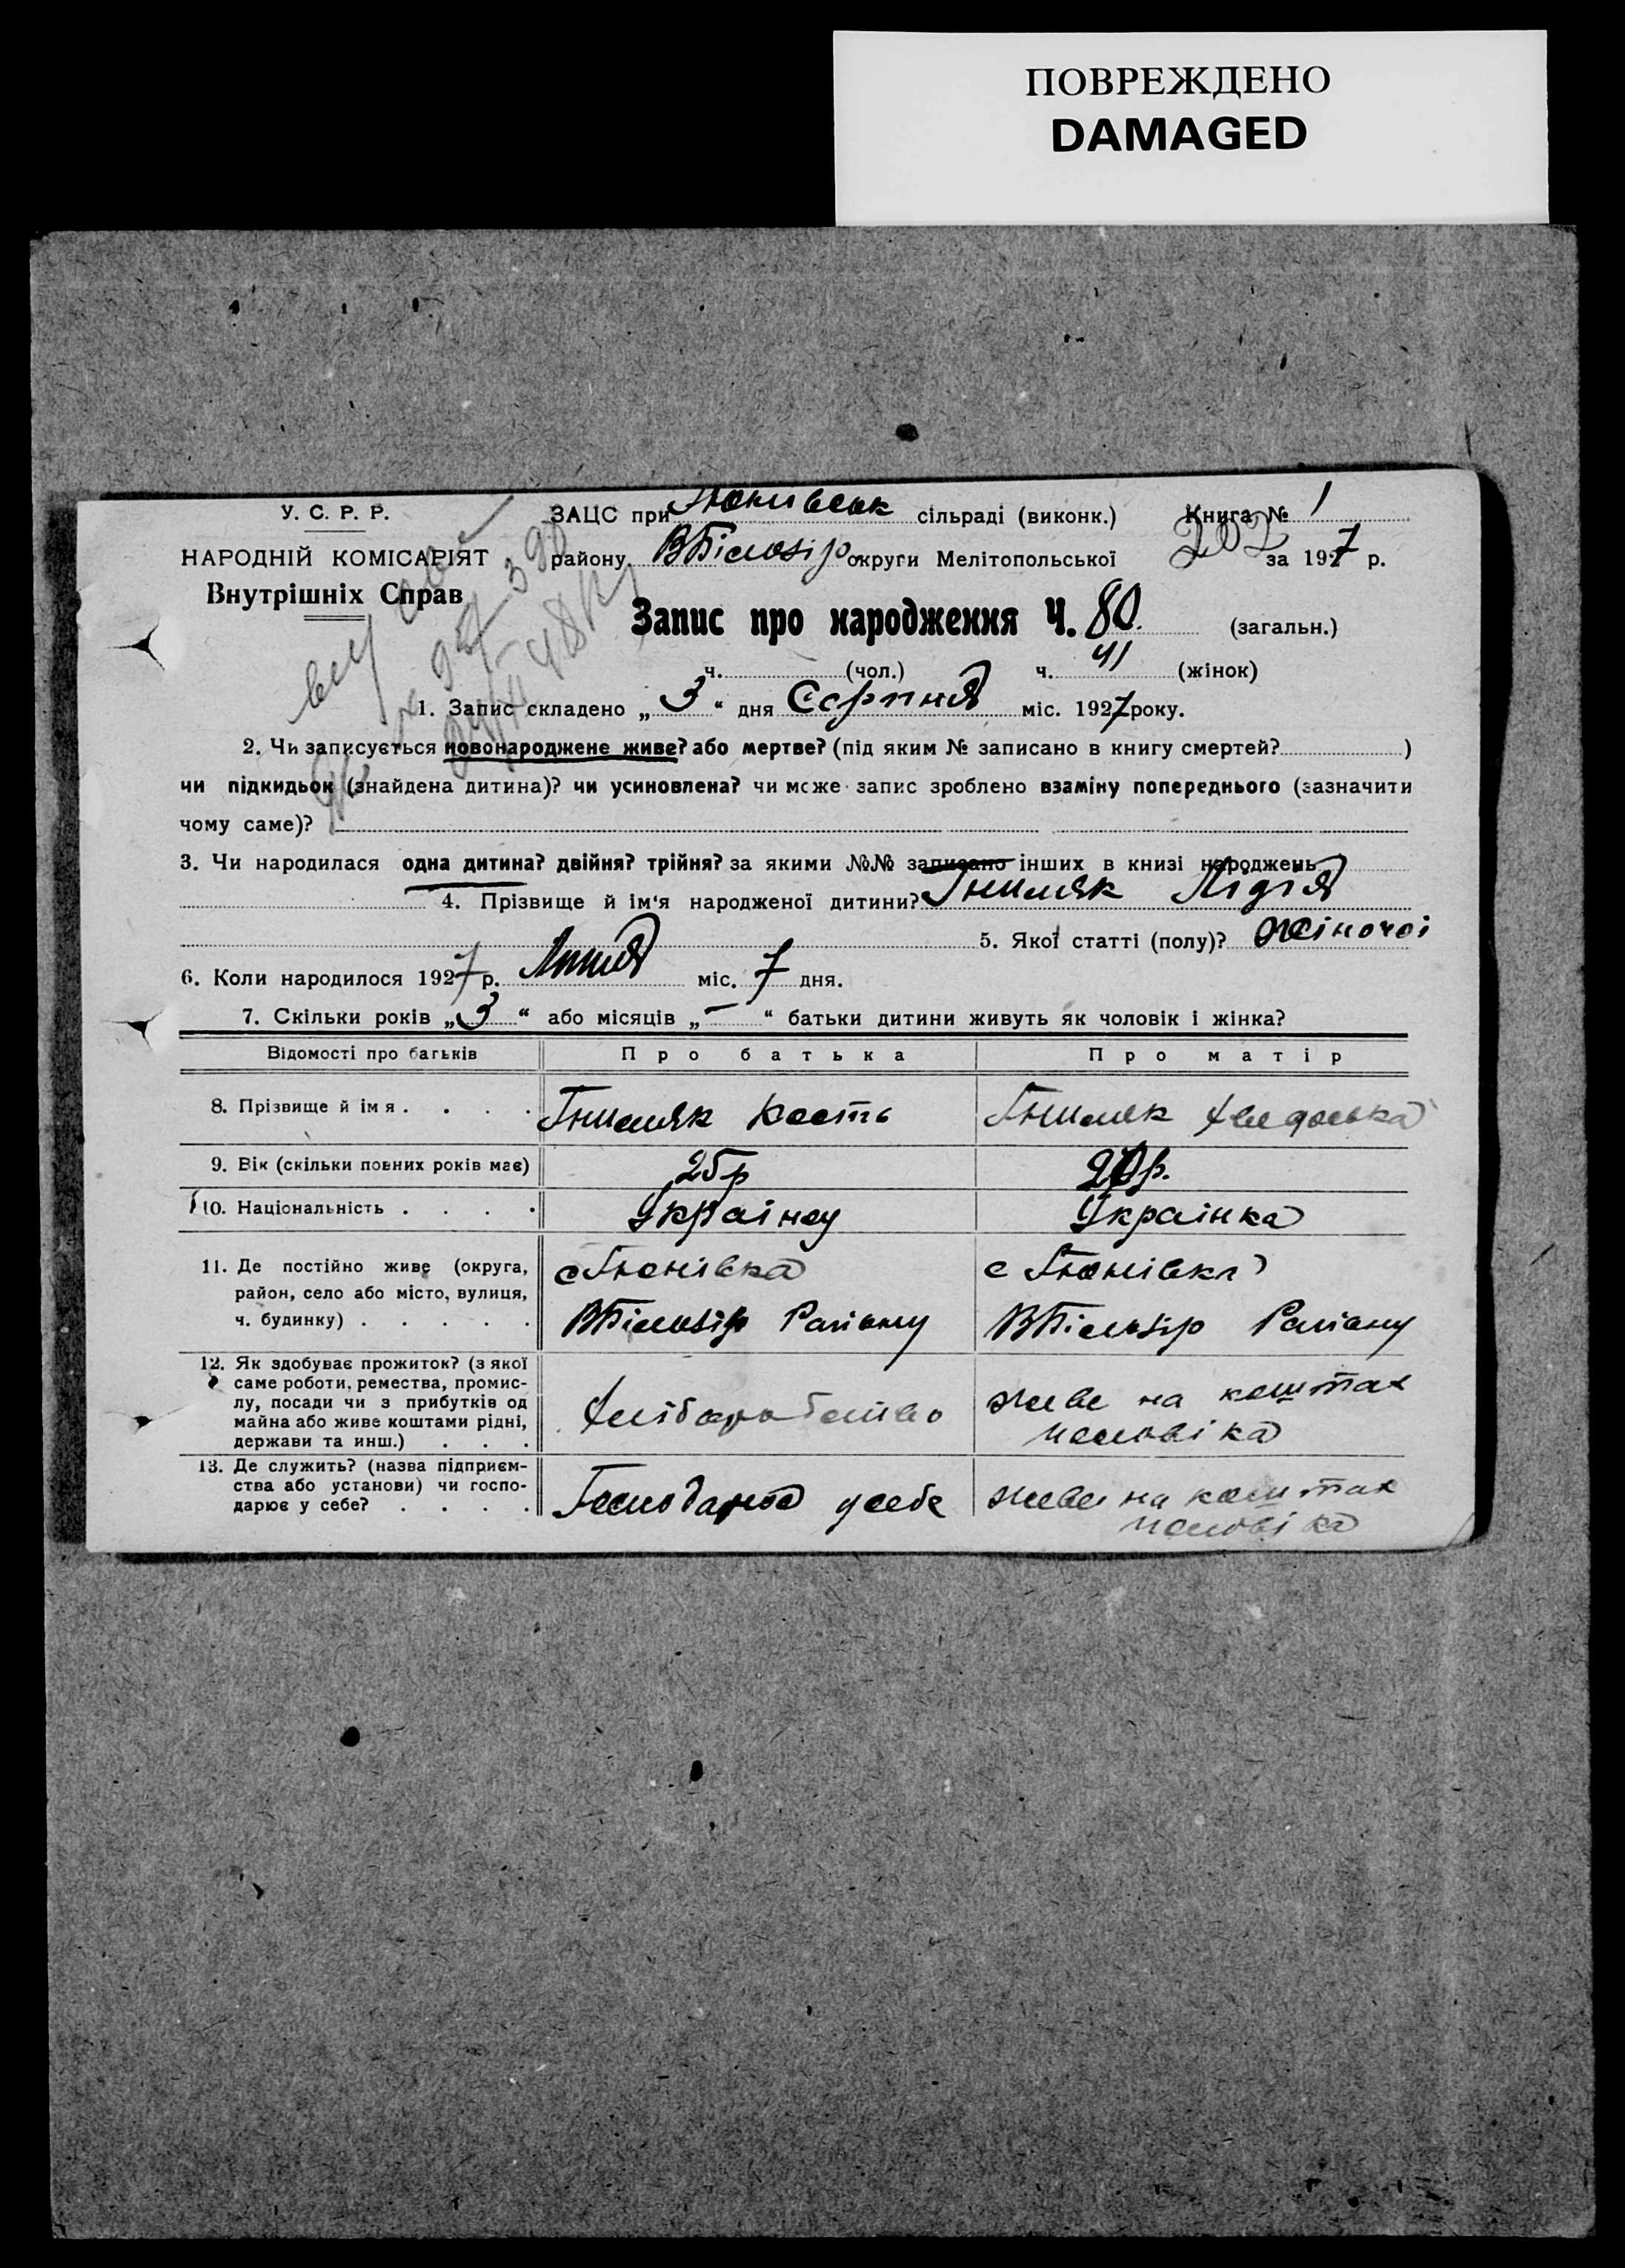 ПОВРЕЖДЕНО
DAMAGED
У. С. Р. Р.
НАРОДНІЙ КОМІСАРІЯТ
Внутрішніх Справ
ЗАЦС при сільраді (виконк.) Книга № 1
району ВБілозір округи Мелітопольської 202 за 1927 р.
Запис про народження Ч. 80. (загальн.)
ч. (чол.) ч. 41 (жінок)
1. Запис складено „ 3 “ дня Серпня міс. 1927 року.
2. Чи записується новонароджене живе? або мертве? (під яким № записано в книгу смертей? )
чи підкидьок (знайдена дитина)? чи усиновлена? чи може запис зроблено взаміну попереднього (зазначити
чому саме)?
3. Чи народилася одна дитина? двійня? трійня? за якими №№ записано інших в книзі народжень
4. Прізвище й ім‘я народженої дитини? Гниляк Лідія
5. Якої статті (полу)? Жіночоі
6. Коли народилося 1927 р. Липня міс. 7 дня.
7. Скільки років „ 3 “ або місяців „ — “ батьки дитини живуть як чоловік і жінка?
Відомості про батьків Про батька Про матір
8. Прізвище й імя . . . . Гниляк Кость Гниляк
9. Вік (скільки повних років має) 25р 20р.
10. Національність . . . . Украінец Украінка
11. Де постійно живе (округа,
район, село або місто, вулиця,
ч. будинку) . . . . .
с Гюнівка
ВБілозір Району
с Гюнівка
ВБілозір Району
12. Як здобуває прожиток? (з якої
саме роботи, ремества, промис-
лу, посади чи з прибутків од
майна або живе коштами рідні,
держави та инш.) . . .
живе на коштах
чоловіка
13. Де служить? (назва підприєм-
ства або установи) чи госпо-
дарює у себе? . . . .
Господарює усебе
живе на коштах
чоловіка